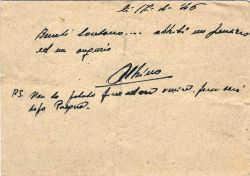 li 17-4-46
Benché lontano... abbiti un pensiero
ed un augurio
Albino
P.S. Non ho potuto finora venire. Forse verrò
dopo Pasqua.